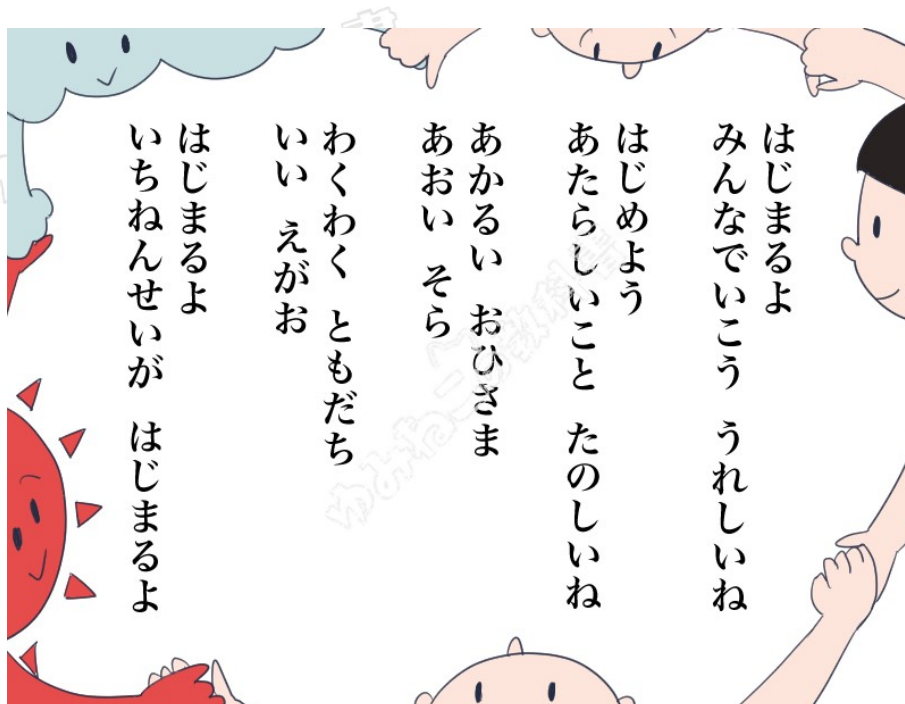 はじまるよ
みんなでいこう　うれしいね
はじめよう
あたらしいこと　たのしいね
あかるい　おひさま
あおい　そら
わくわく　ともだち
いい　えがお
はじまるよ
いちねんせいが　はじまるよ